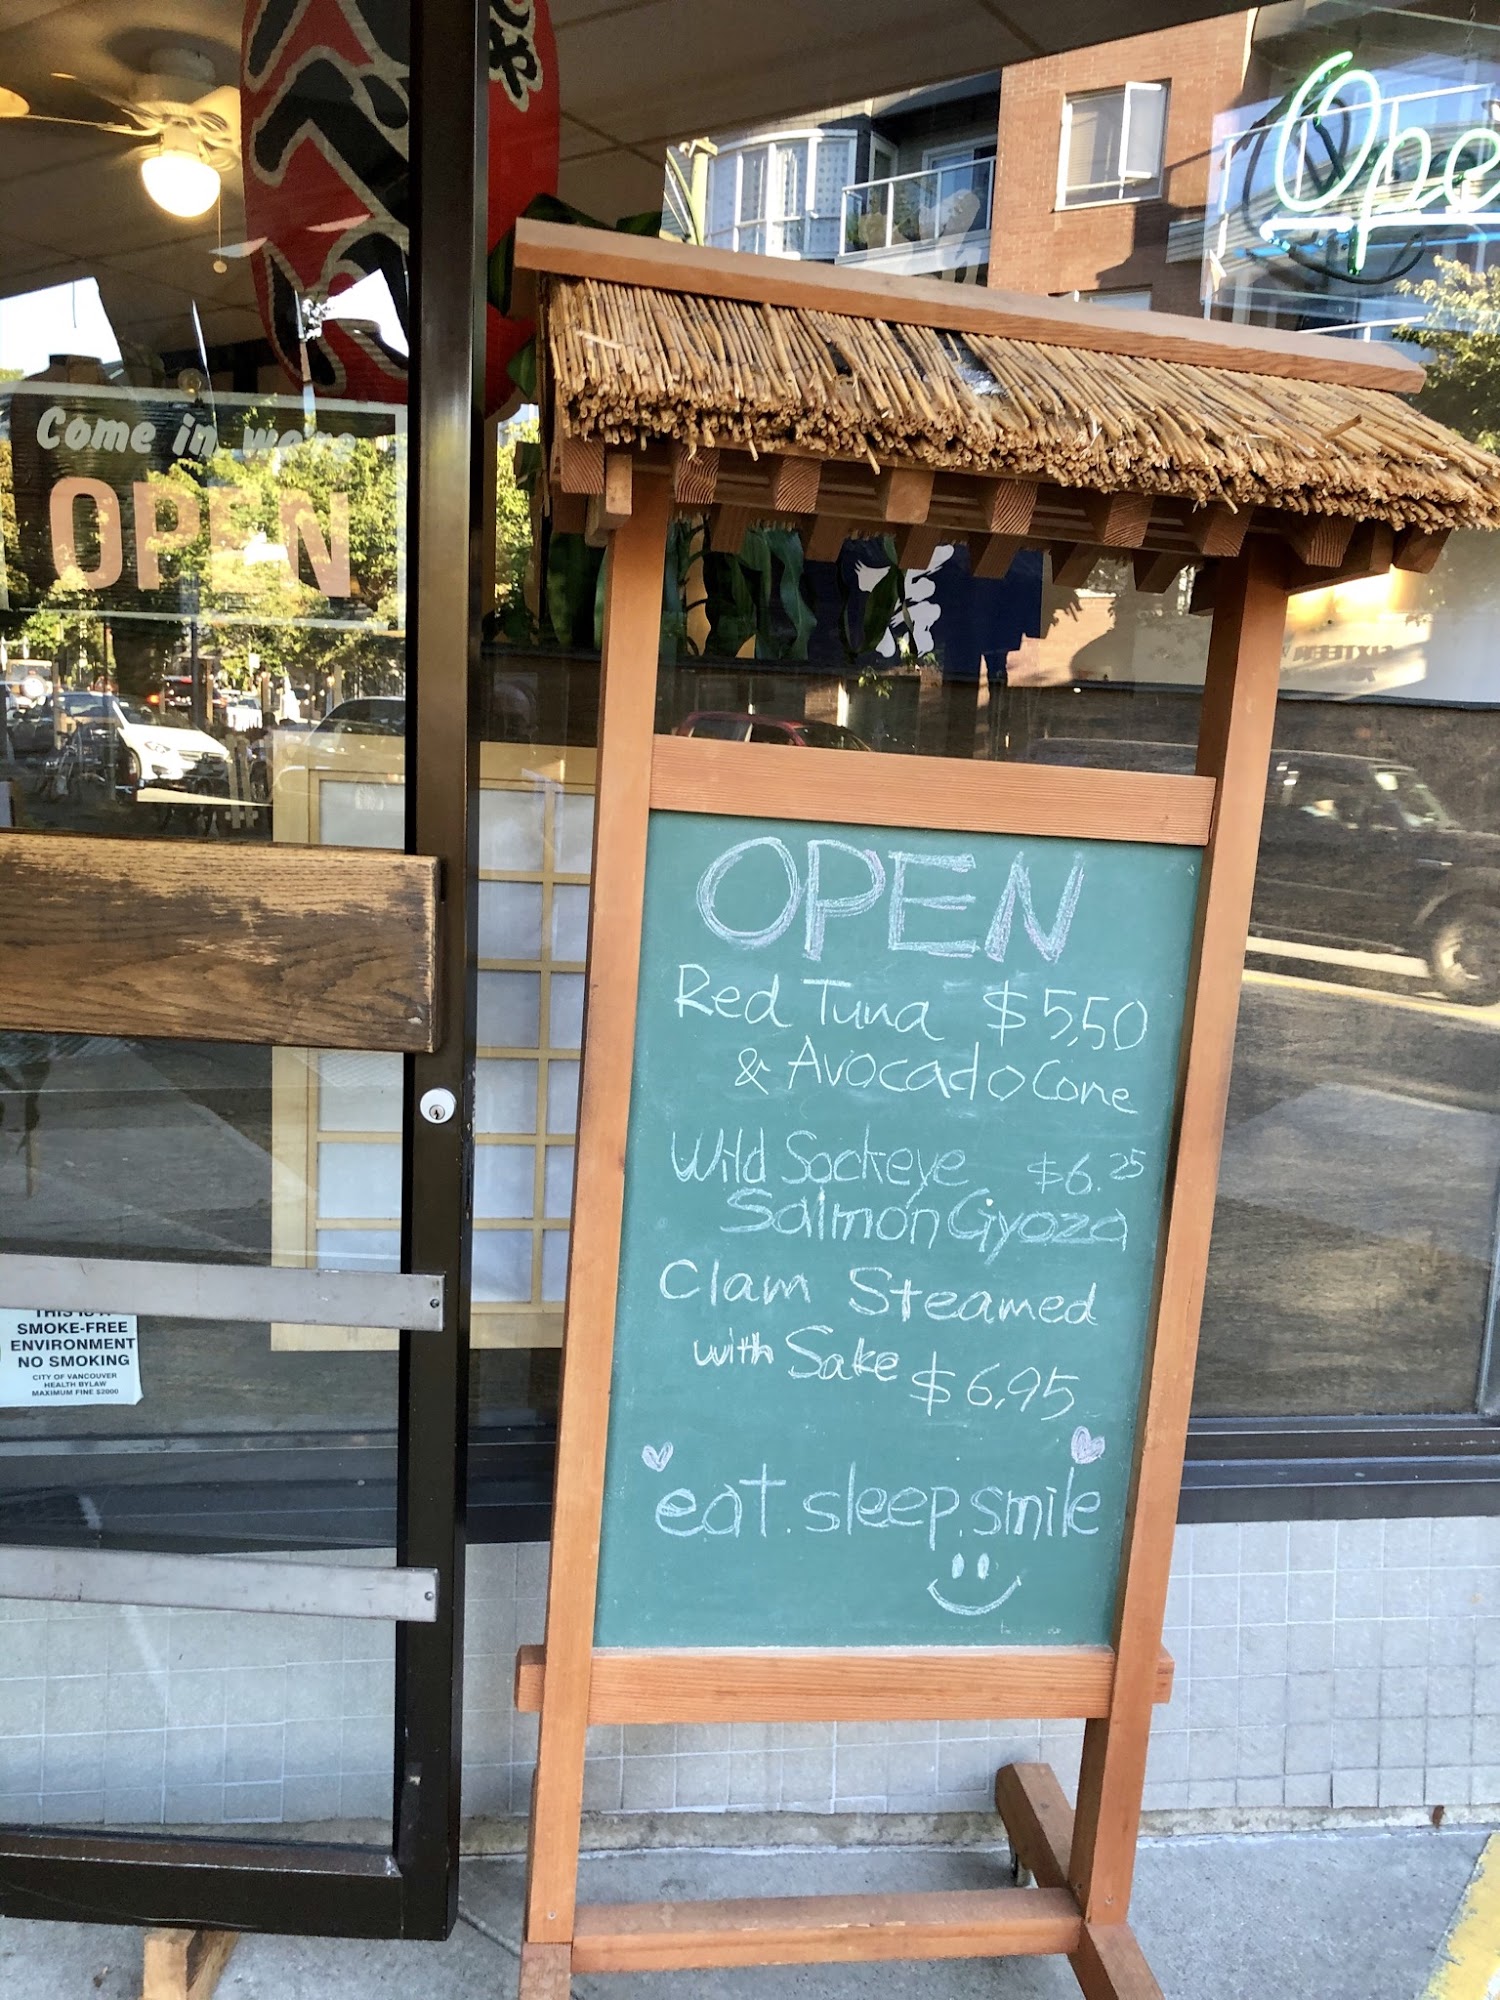 Come in we're
OPEN
Ope
OPEN
Red Tuna $5.50
& Avocado Cone
Wild Sockeye $6.25
Salmon Gyoza
Clam Steamed
with Sake $6.95
eat.sleep.smile
THIS IS A
SMOKE-FREE
ENVIRONMENT
NO SMOKING
CITY OF VANCOUVER
HEALTH BYLAW
MAXIMUM FINE $2000